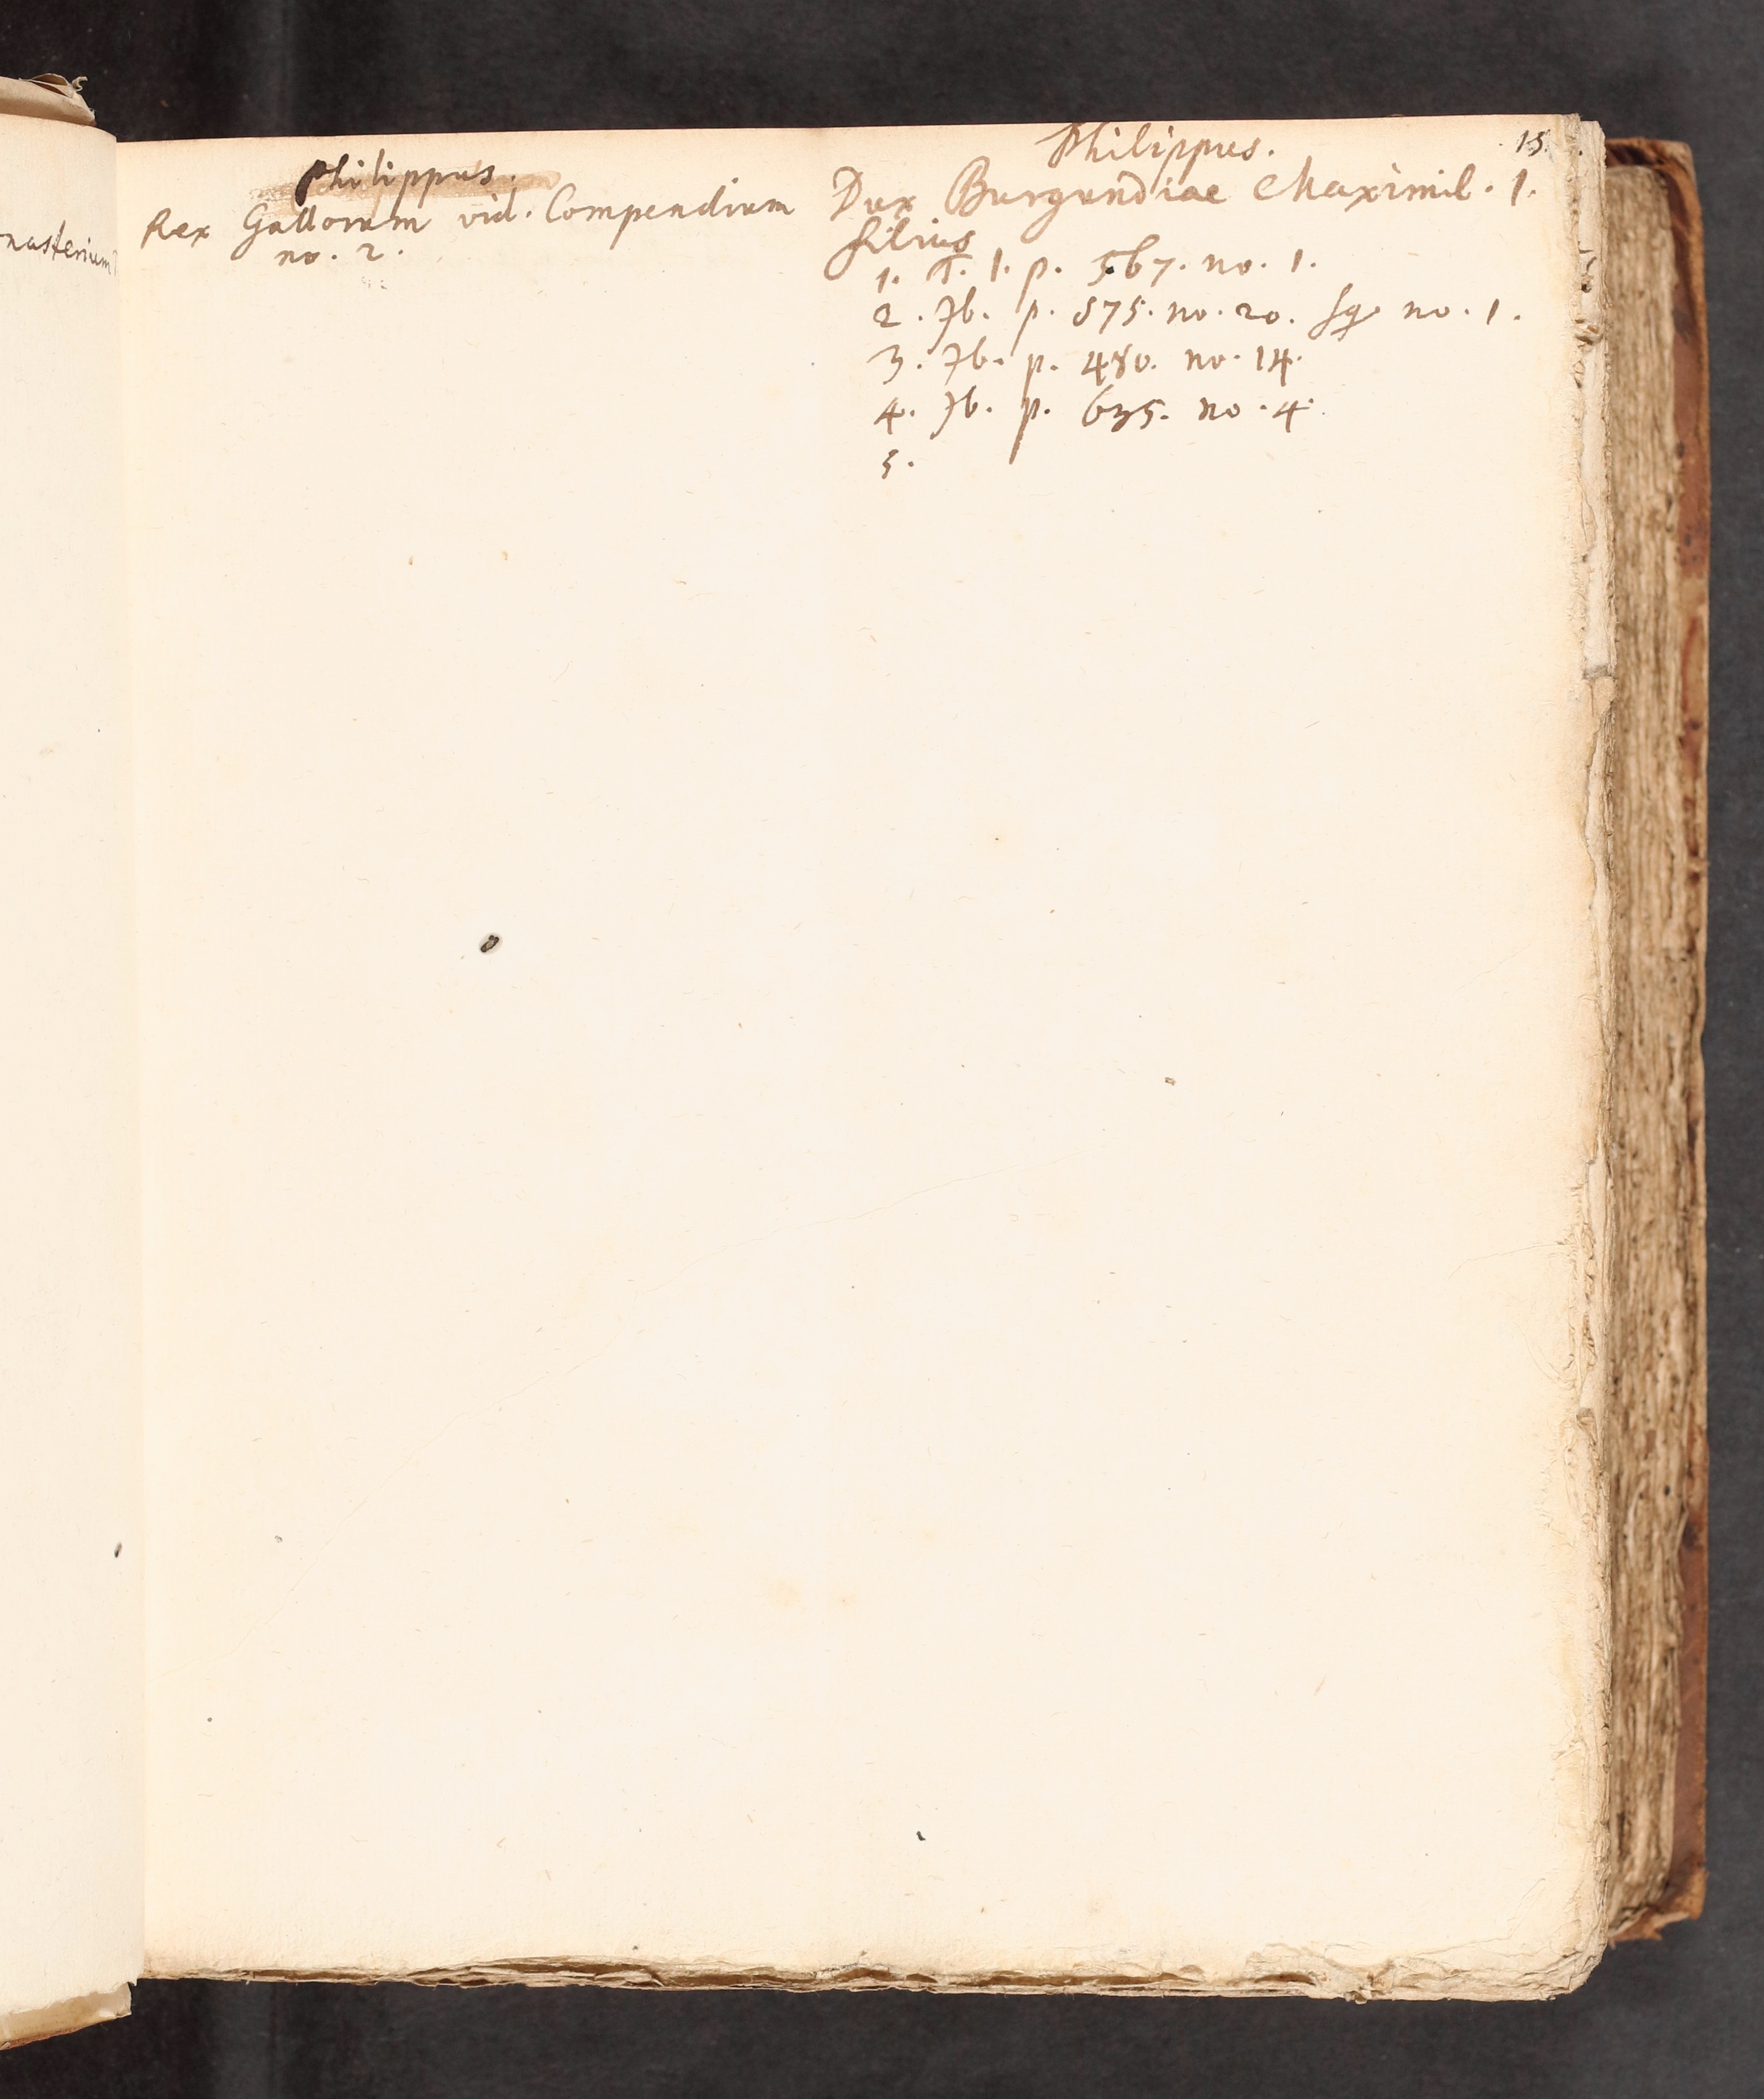 15.
nasterium
Philippus.
Rex Gallorum vid. Compendium
no. 2.
Philippus.
Dux Burgundiae Maximil. 1.
filius
1. T. 1. p. 567. no. 1.
2. Ib. p. 575. no. 20. sq. no. 1.
3. Ib. p. 480. no. 14.
4. Ib. p. 635. no. 4.
5.